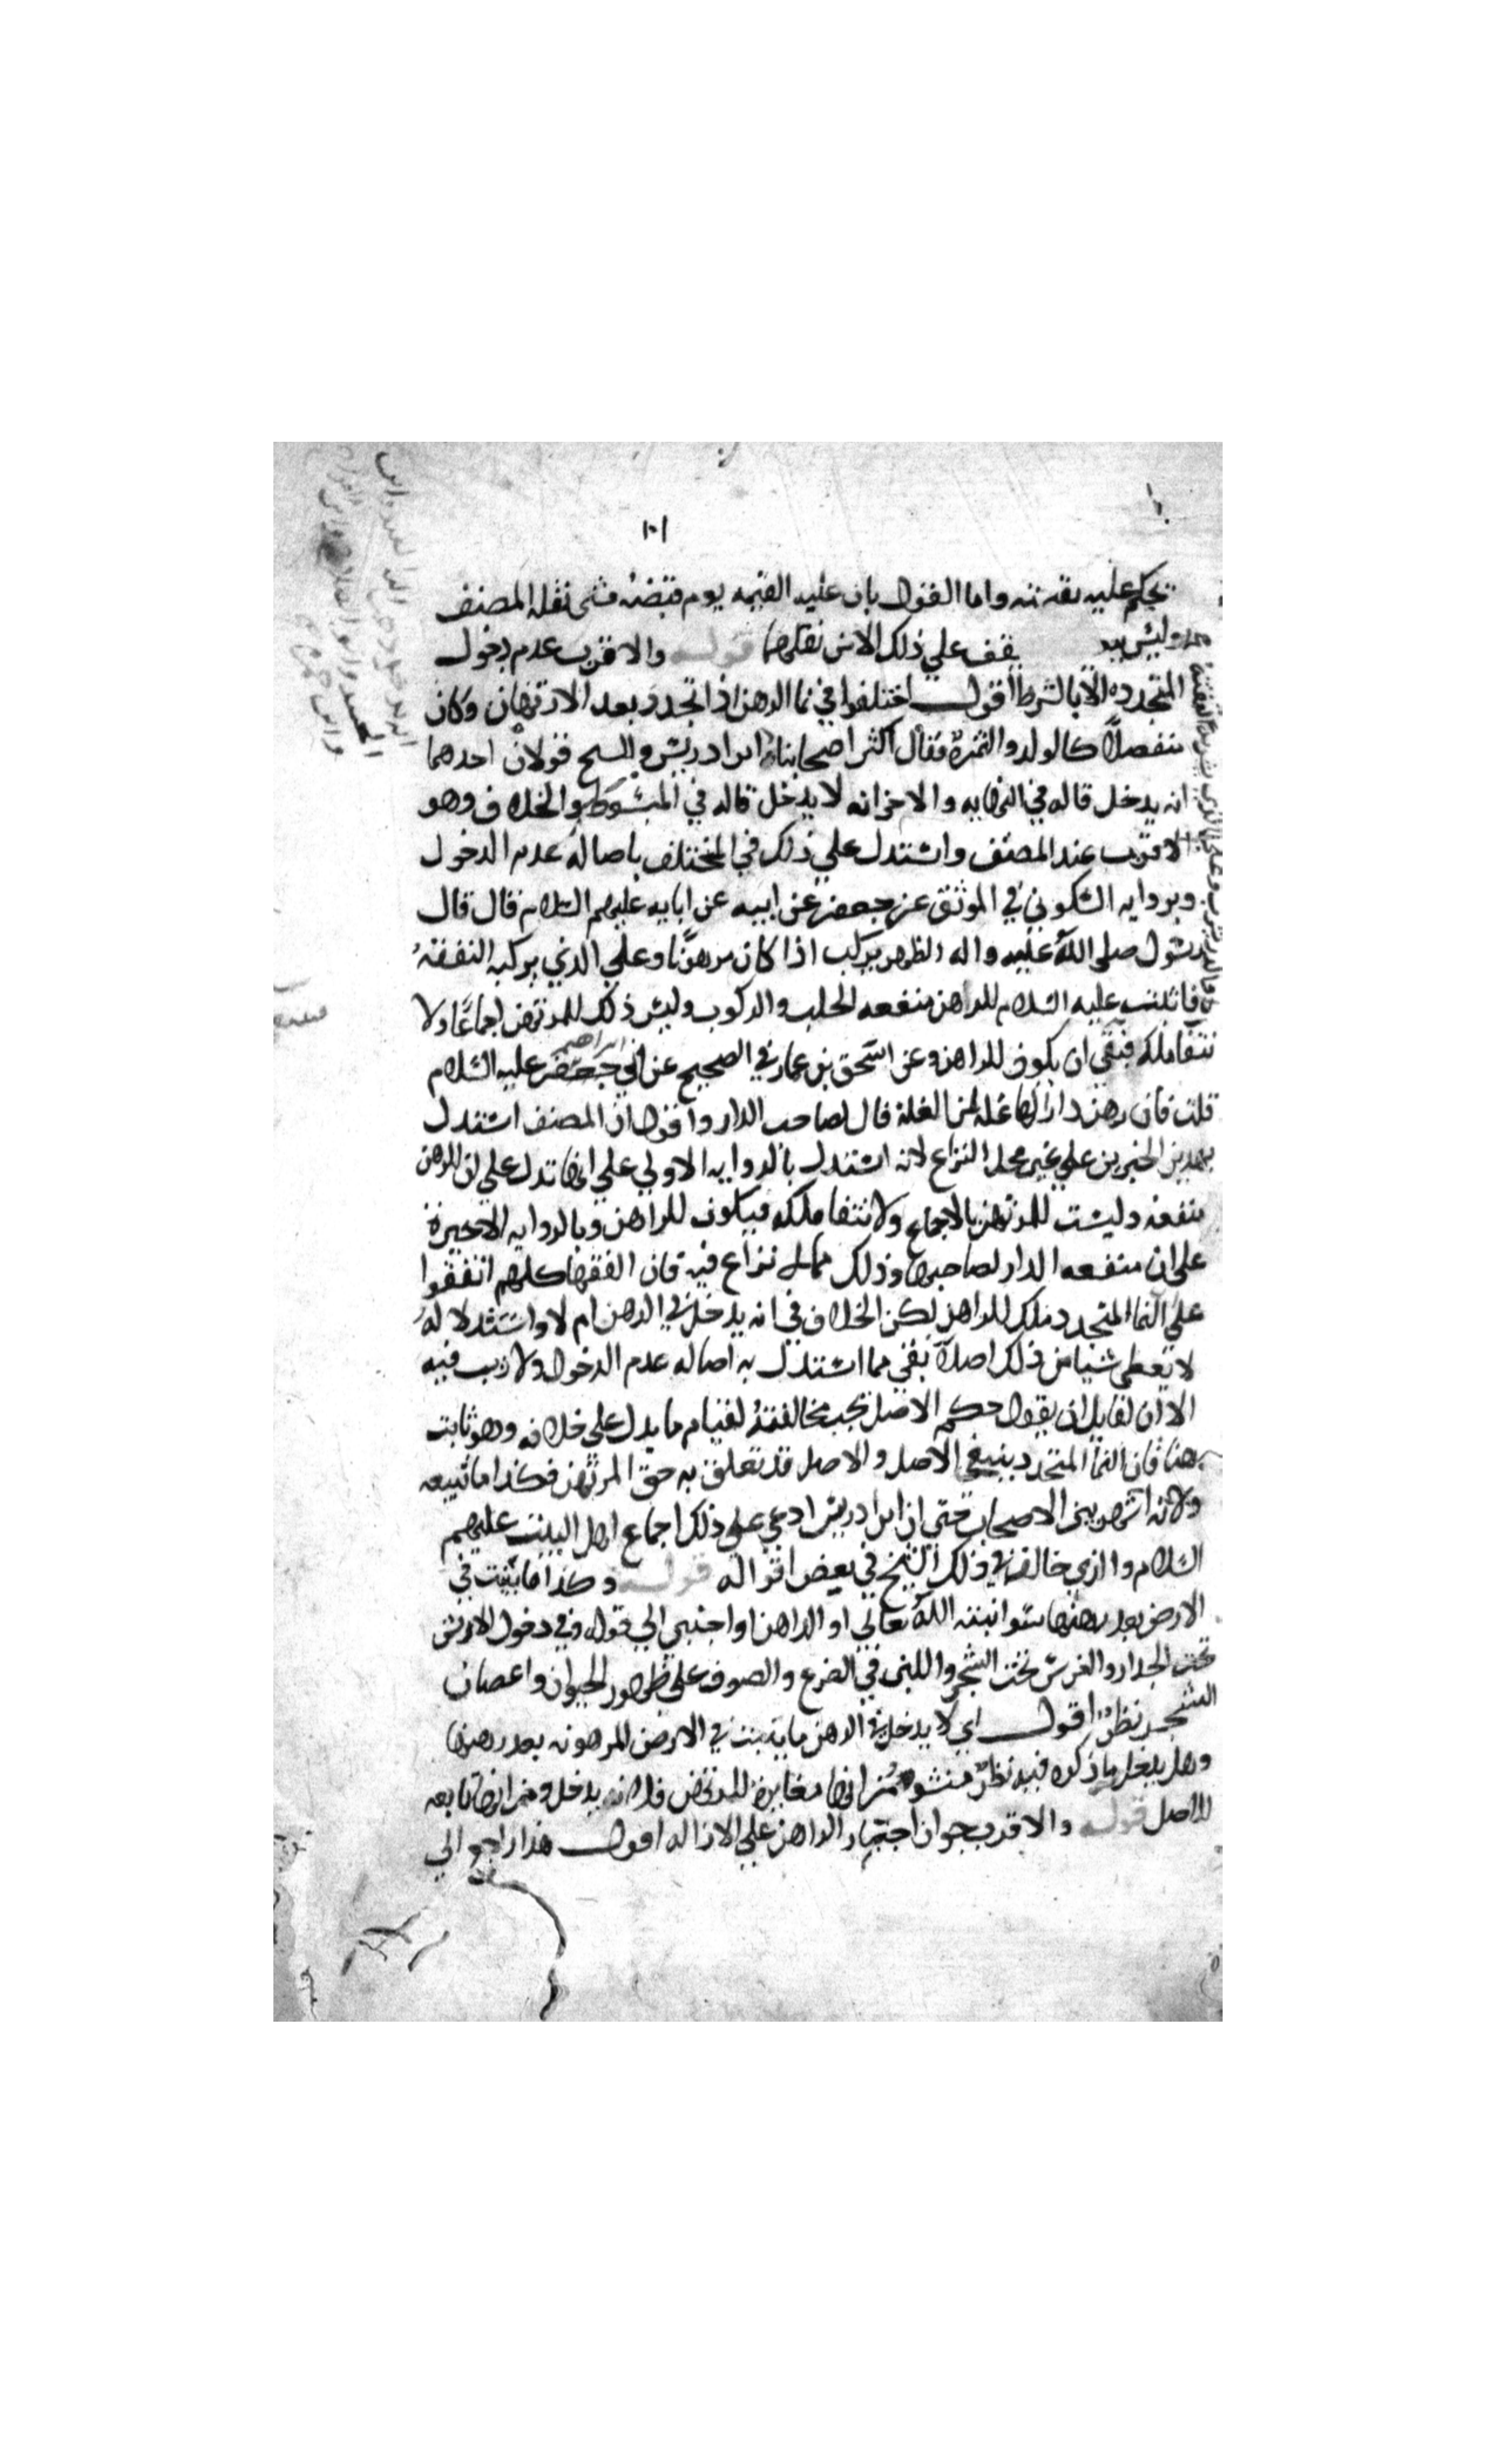 ١٠١
يحكم عليه بقيمته واما القول بان عليه القيمه يوم قبضه فشى نقله المصنف
يقف علي ذلك الامن نقلهما قوله والاقرب عدم دخول
المتجدده الا بالشرط اقول اختلفوا في نما الرهن اذا تجدد بعد الارتهان وكان
منفصلا كالولد والثمرة فقال اكثر اصحابنا ابن ادريس وللشيخ قولان احدهما
انه يدخل قاله في النهايه والاخر انه لا يدخل قاله في المبسوط والخلاف وهو
الاقرب عند المصنف واستدل علي ذلك في المختلف باصاله عدم الدخول
وبروايه السكوني في الموثق عن جعفر عن ابيه عن ابايه عليهم السلام قال قال
رسول صلى الله عليه واله الظهر يركب اذا كان مرهونا وعلي الذي يركبه النفقه
فاثبت عليه السلام للراهن منفعه الحلب والركوب وليس ذلك للمرتهن اجماعا ولا
نتفا ملكه فبقي ان يكون للراهن وعن اسحق بن عمار في الصحيح عن ابي جعفر عليه السلام
ابراهيم
قلت فان رهن دارا لها غله لمن الغلة قال لصاحب الدار واقول ان المصنف استدل
بهذين الخبرين علي غير محل النزاع لانه استدل بالروايه الاولي علي انها تدل على ان للرهن
منفعه وليست للمرتهن بالاجماع ولانتفا ملكه فيكون للراهن وبالروايه الاخيرة
على ان منفعه الدار لصاحبها وذلك مما لا نزاع فيه فان الفقها كلهم اتفقوا
علي النما المتجدد ملك للراهن لكن الخلاف في انه يدخل في الرهن ام لا واستدلاله
لا يعطي شيا من ذلك اصلا بقي مما استدل به اصاله عدم الدخول ولا ريب فيه
الا ان لقايل ان يقول حكم الاصل يجب مخالفته لقيام ما يدل على خلافه وهو ثابت
هنا فان النما المتجدد يتبع الاصل والاصل قد تعلق به حق المرتهن فكذا ما تبعه
ولانه اشهر بين الاصحاب حتي ان ابن ادريس ادعي علي ذلك اجماع اهل البيت عليهم
السلام والذي خالف في ذلك الشيخ في بعض اقواله قوله وكذا ما ينبت في
الارض بعد رهنها سوا انبته الله تعالي او الراهن او اجنبي الي قوله وفي دخول الارض
تحت الجدار والغرس تحت الشجر واللبن في الضرع والصوف على ظهور الحيوان واغصان
الشجر نظر اقول اي لا يدخل في الرهن ما ينبت في الارض المرهونه بعد رهنها
وهل يدخل ما ذكره فيه نظر منشوه من انها مغايرة للمرتهن فلا يدخل ومن انها تابعه
للاصل قوله والاقرب جواز اجبار الراهن علي الازاله اقول هذا راجع الي